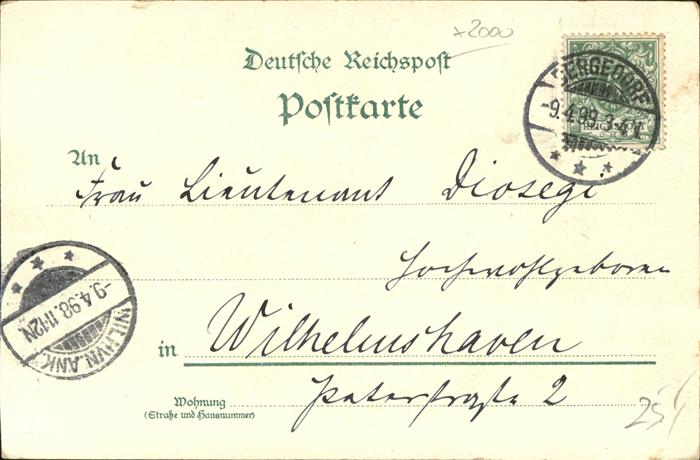 +2000
Deutsche Reichspost
Postkarte
BERGEDORF
-9.4.98.3-4N.
An
Frau Lieutenant Diosegi
Hochwohlgeboren
-9.4.98.11-12N
WILHVN.ANK.
in Wilhelmshaven
Wohnung
(Straße und Hausnummer)
Peterstraße 2
25